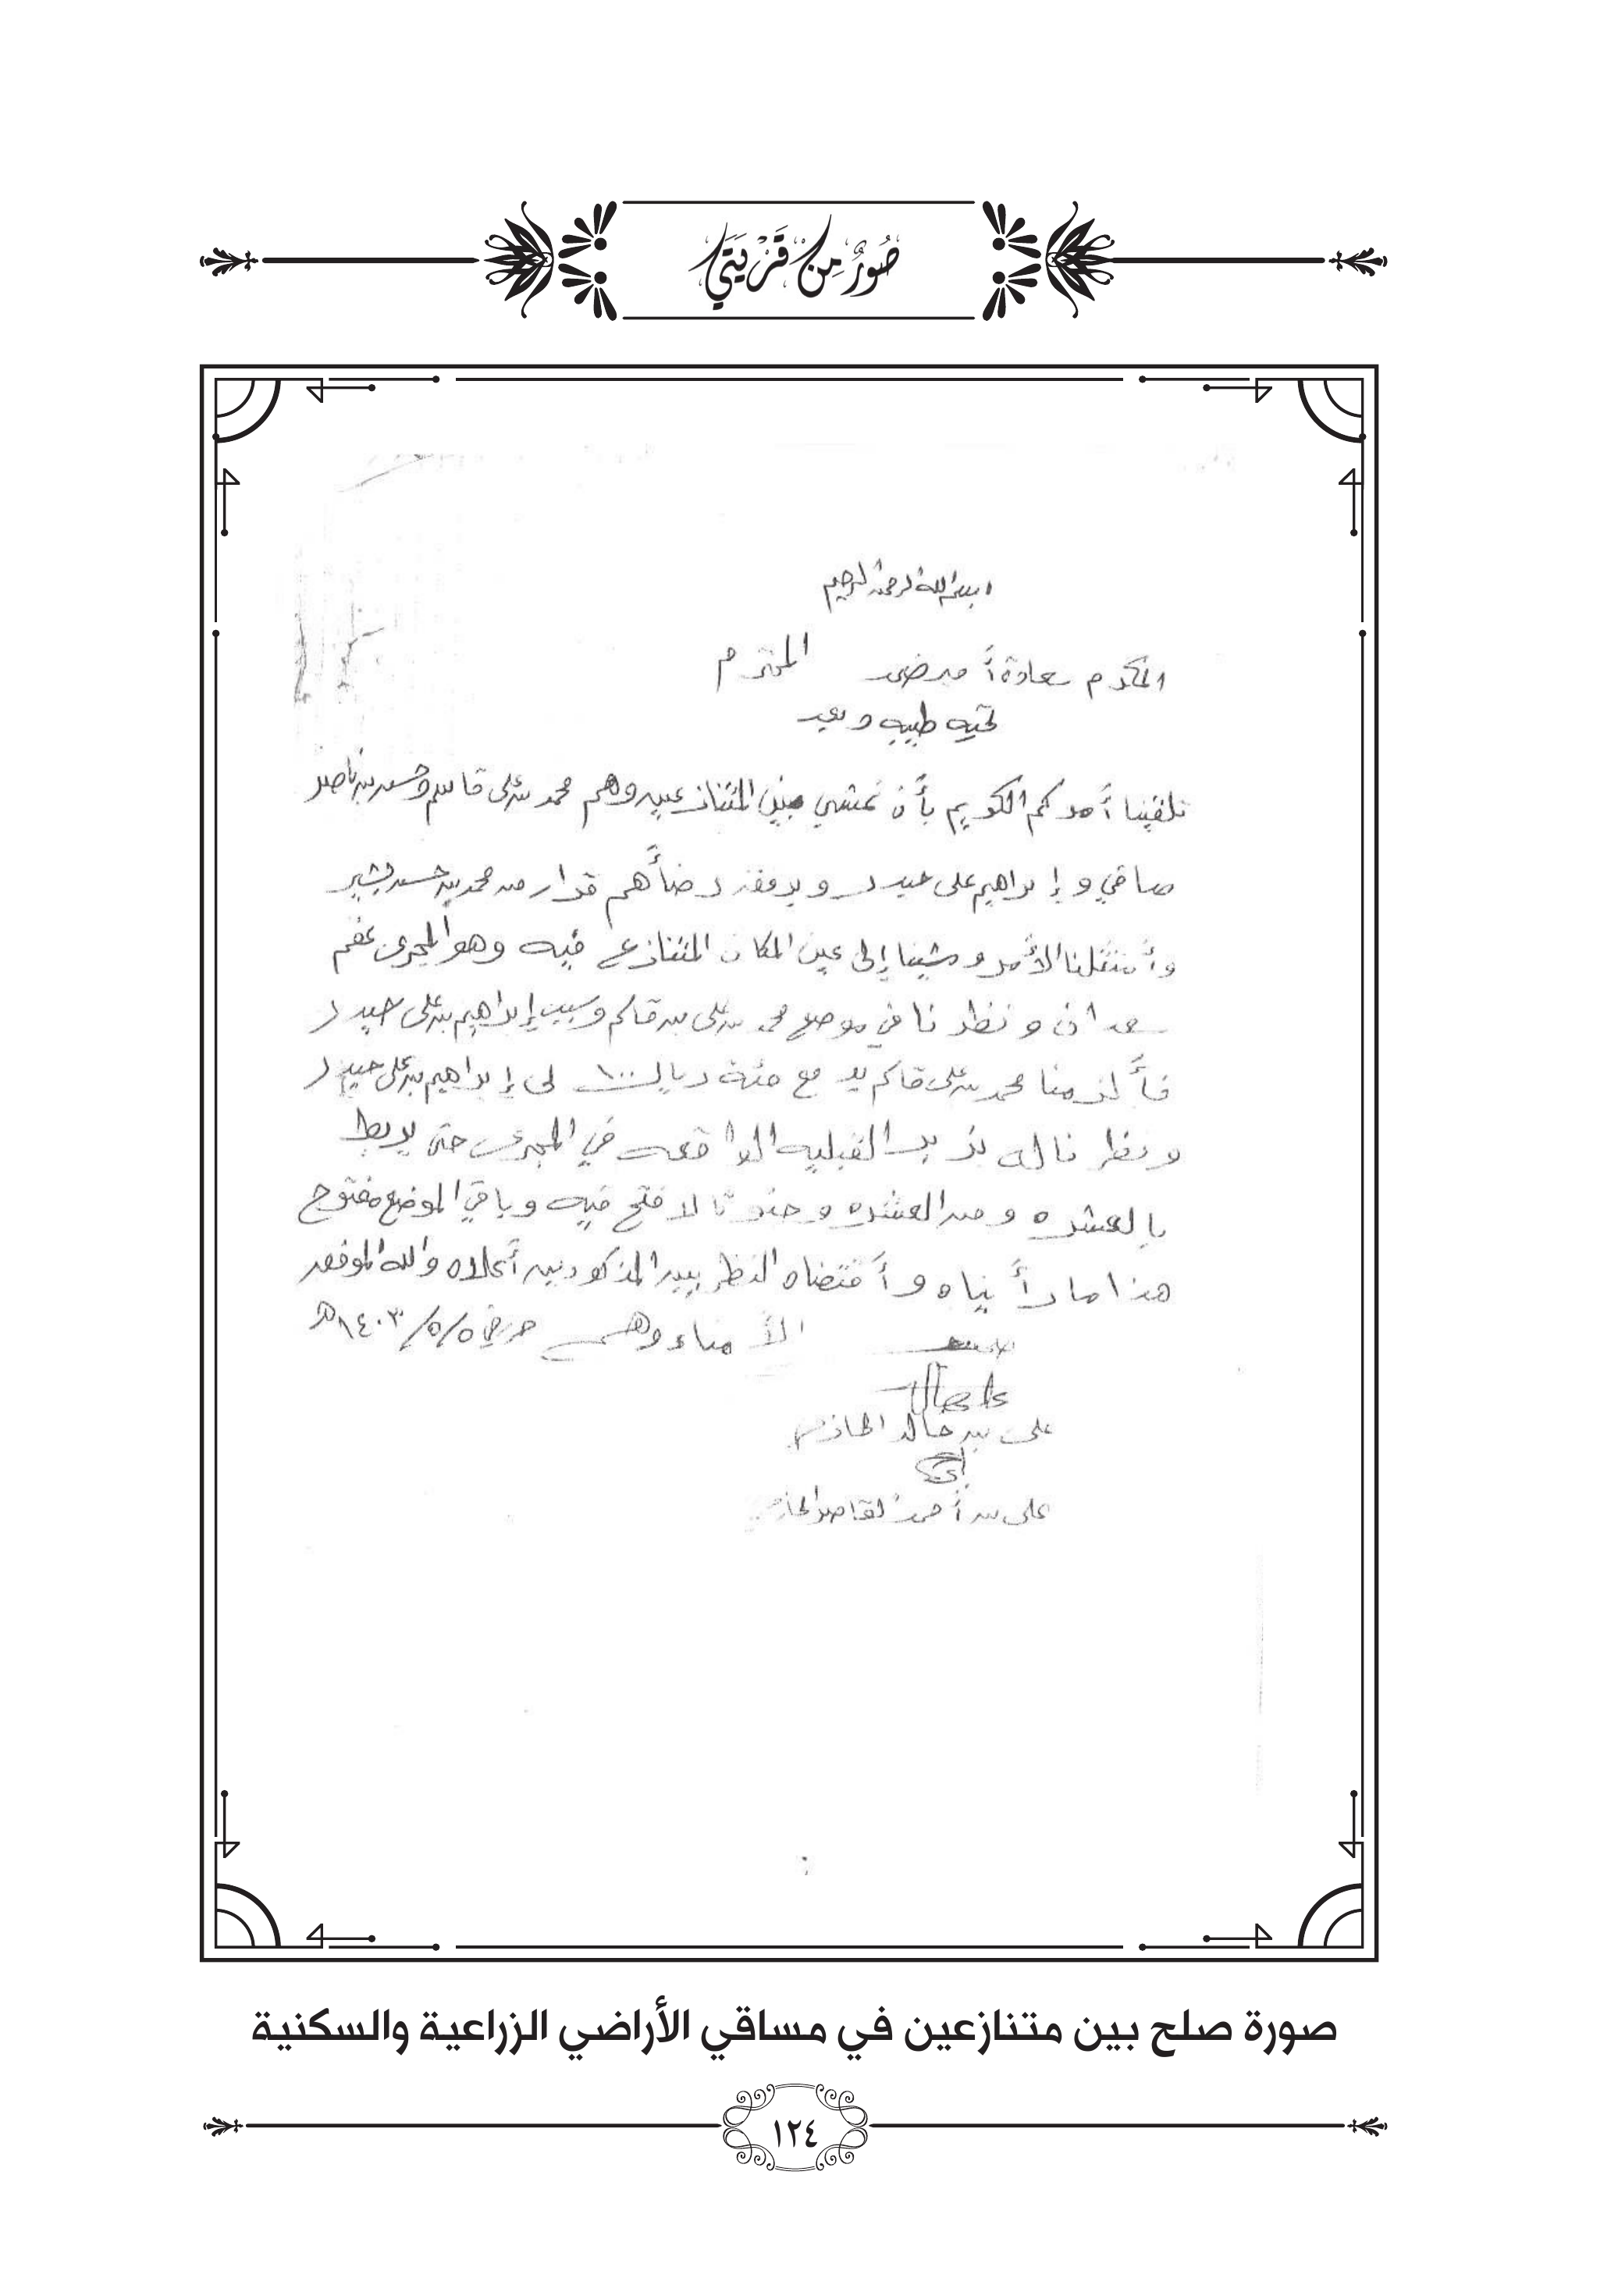 صُوَرٌ مِن قَرْيَتِي
بسم الله الرحمن الرحيم
المكرم سعادة أمير ضمد المحترم
تحيه طيبه وبعد
تلقينا أمركم الكريم بأن نمشي بين المتنازعين وهم محمد بن على قاسم وحسن بن ناصر
صافي وإبراهيم على حيدر و رضأهم قرار من محمد بن حسن بشير
وأمتثلنا الأمر ومشينا إلى عين المكان المتنازع فيه وهو المجرى
سعدان ونظرنا في موضع محمد بن على بن قاسم وسبب إبراهيم بن على حيدر
فألزمنا محمد بن على قاسم يدفع مئة ريال ١٠٠ لى إبراهيم بن على حيدر
ونظرنا له القبليه الواقعه في المجرى حتى يربط
بالعشره ومن العشره وجنوبًا لا فتح فيه وباقي الموضع مفتوح
هذا ما رأيناه وأقتضاه النظر بين المذكورين أعلاه والله الموفق
الأمناء وهم حرر في ٥/٥/١٤٠٣هـ
على بن خالد الحازمي
على بن أحمد الحازمي
صورة صلح بين متنازعين في مساقي الأراضي الزراعية والسكنية
١٢٤